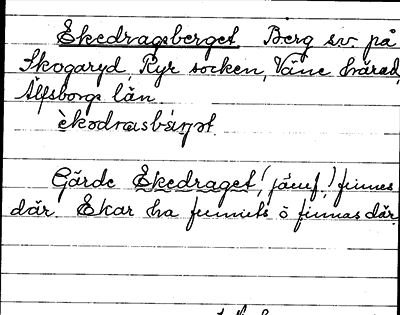 Ekedragsberget Berg sv. på
Skogaryd, Ryr socken, Väne härad,
Älfsborgs län
èkədrasbárjət
Gärde Ekedraget (jämf.) finnes
där. Ekar ha funnits o finnas där.